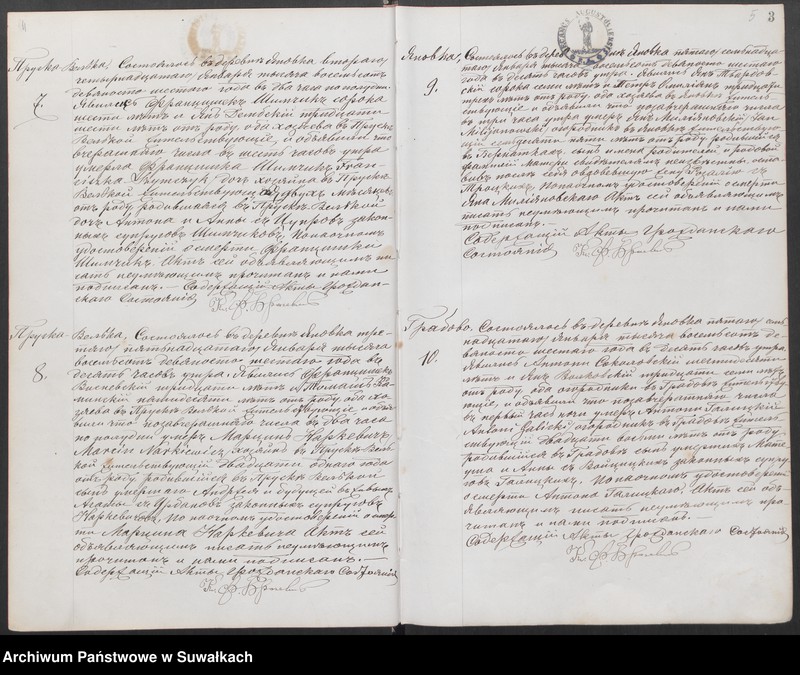 5 3
Пруска Велька, Состоялось въ деревнѣ Яновка второго
четырнадцатаго Января тысяча восемьсотъ
девяносто шестого года въ два часа по полудни
7.
Явились Францишекъ Шимчикъ сорока
шести лѣтъ и Янъ тридцати
шести лѣтъ отъ роду, оба хозяева въ Прускѣ
Велькой жительствующіе, и объявили что
вчерашняго числа въ шесть часовъ утра
умерла Францишка Шимчикъ Fran-
ciszka Szymczyk дочь хозяина въ Прускѣ
Велькой двухъ мѣсяцевъ
отъ роду родившаяся въ Прускѣ Велькой
дочь Антона и Анны съ Цупровъ закон-
ныхъ супруговъ Шимчиковъ, По наочномъ
удостовѣреніи о смерти Францишки
Шимчикъ Актъ сей объявляющимъ пи-
сать неумѣющимъ прочитанъ и нами
подписанъ. — Содержащій Акты Граждан-
скаго Состоянія
Пруска-Велька, Состоялось въ деревнѣ Яновка тре-
тяго, пятнадцатаго Января тысяча
восемьсотъ девяносто шестого года въ
8.
десять часовъ утра. Явились Францишекъ
Висневскій тридцати лѣтъ и Томашъ
пятидесяти лѣтъ отъ роду оба хо-
зяева въ Прускѣ Велькой жительствующіе, и объя-
вили что позавчерашняго числа въ два часа
по полудни умеръ Марцинъ Наркевичъ,
Marcin Narkiewicz, хозяинъ въ Прускѣ Вель-
кой жительствующій двадцати одного года
отъ роду родившійся въ Прускѣ Велькой
сынъ умершаго Андрея и
Агаты съ законныхъ супруговъ
Наркевичовъ, По наочномъ удостовѣреніи о смер-
ти Марцина Наркевича Актъ сей
объявляющимъ писать неумѣющимъ
прочитанъ и нами подписанъ. —
Содержащій Акты Гражданскаго Состоянія
Яновка, Состоялось въ деревнѣ Яновка пятаго, семьнадца-
таго Января тысяча восемьсотъ девяносто шестого
9.
года въ десять часовъ утра. Явились Янъ Твардов-
скій сорока семи лѣтъ и Петръ тридцати
трехъ лѣтъ отъ роду, оба хозяева въ Яновкѣ житель-
ствующіе и объявили что позавчерашняго числа
въ три часа утра умеръ Янъ Миляновскій, Jan
Miljanowski, огородникъ въ Яновкѣ жительствую-
щій семьдесяти пяти лѣтъ отъ роду родившійся
въ сынъ имена родителей и родовой
фамиліи матери свидѣтелямъ неизвѣстны, оста-
вивъ послѣ себя овдовевшую жену съ
Троцкихъ, По наочномъ удостовѣреніи о смерти
Яна Миляновскаго Актъ сей объявляющимъ
писать неумѣющимъ прочитанъ и нами
подписанъ.
Содержащій Акты Гражданскаго
Состоянія
Грабово. Состоялось въ деревнѣ Яновка пятаго, семь-
надцатаго Января тысяча восемьсотъ де-
вяносто шестого года въ десять часовъ утра
10.
Явились Антони Соколовскій шестидесяти
лѣтъ и Янъ тридцати семи лѣтъ
отъ роду, оба огородники въ Грабовѣ жительствую-
щіе, и объявили что позавчерашняго числа
въ первый часъ ночи умеръ Антони Галицкій
Antoni Galicki, огородникъ въ Грабовѣ житель-
ствующій двадцати восьми лѣтъ отъ роду
родившійся въ Грабовѣ сынъ умершихъ Мате-
уша и Анны съ законныхъ супру-
говъ Галицкихъ. По наочномъ удостовѣреніи
о смерти Антона Галицкаго Актъ сей объ-
являющимъ писать неумѣющимъ про-
читанъ и нами подписанъ. —
Содержащій Акты Гражданскаго Состоянія
Archiwum Państwowe w Suwałkach